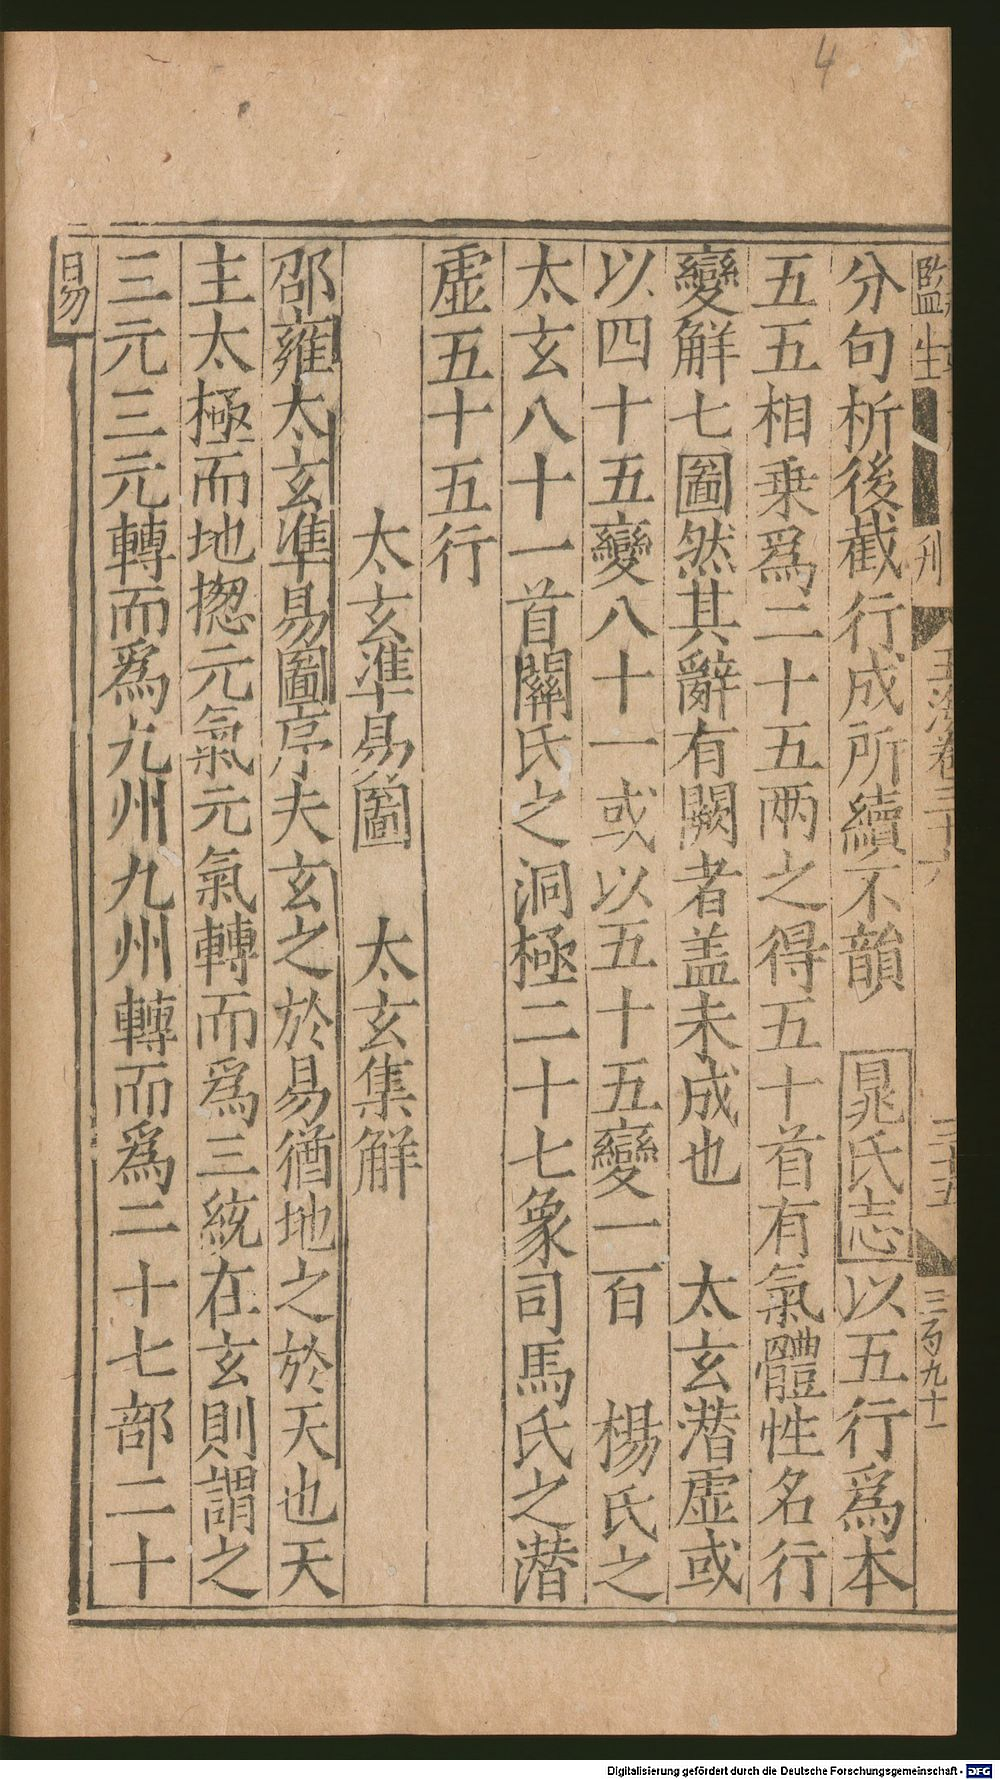 4
監生 刊 玉海卷三十六 三百九十一
分句析後截行成所續不韻 晁氏志以五行爲本
五五相乗爲二十五兩之得五十首有氣體性名行
變解七圖然其辭有闕者盖未成也 太玄潜虚或
以四十五變八十一或以五十五變一百 楊氏之
太玄八十一首關氏之洞極二十七象司馬氏之潜
虚五十五行
太玄準易圖 太玄集解
邵雍太玄準易圖序夫玄之於易猶地之於天也天
主太極而地揔元氣元氣轉而爲三統在玄則謂之
三元三元轉而爲九州九州轉而爲二十七部二十
易
Digitalisierung gefördert durch die Deutsche Forschungsgemeinschaft - DFG